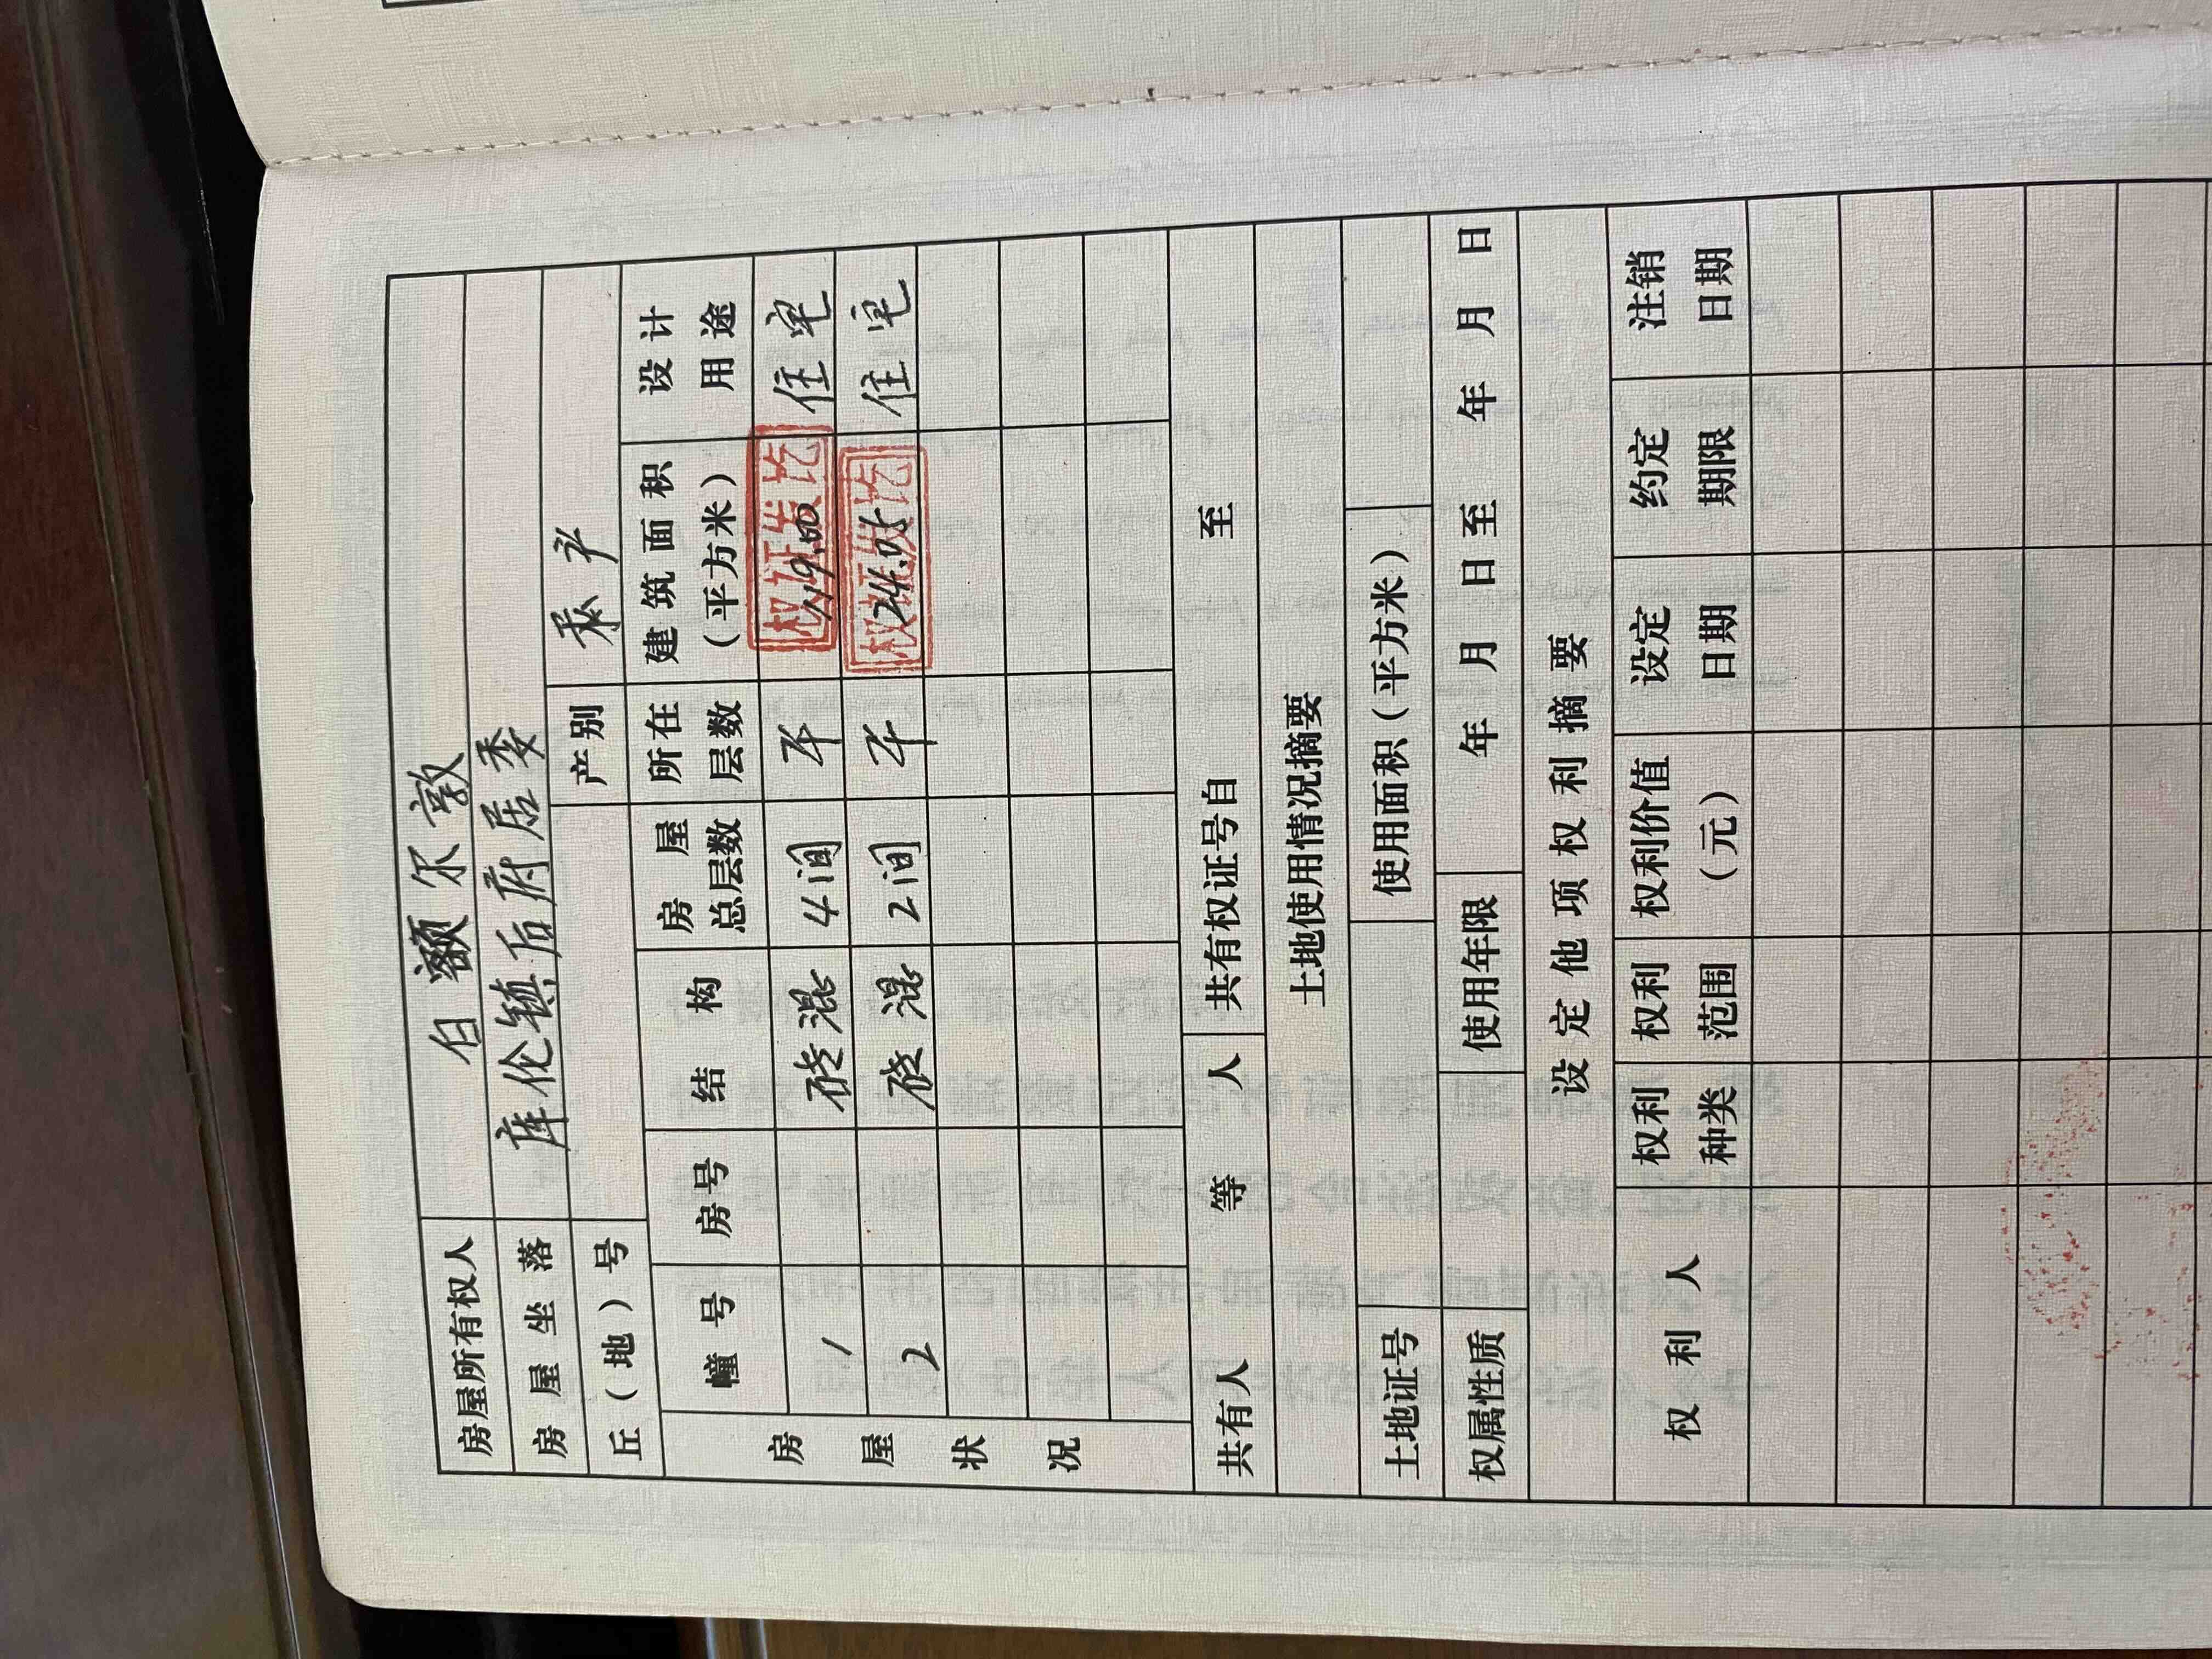 房屋所有权人 白额尔敦
房屋坐落 库伦镇后府居委
丘（地）号 产别 私产
房屋状况
幢号 房号 结构 房屋总层数 所在层数 建筑面积（平方米） 设计用途
1 砖混 4间 平 119.00 住宅
2 砖混 2间 平 24.05 住宅
权证发讫
权证发讫
共有人 等 人 共有权证号自 至
土地使用情况摘要
土地证号 使用面积（平方米）
权属性质 使用年限 年 月 日至 年 月 日
设定他项权利摘要
权利人 权利种类 权利范围 权利价值（元） 设定日期 约定期限 注销日期